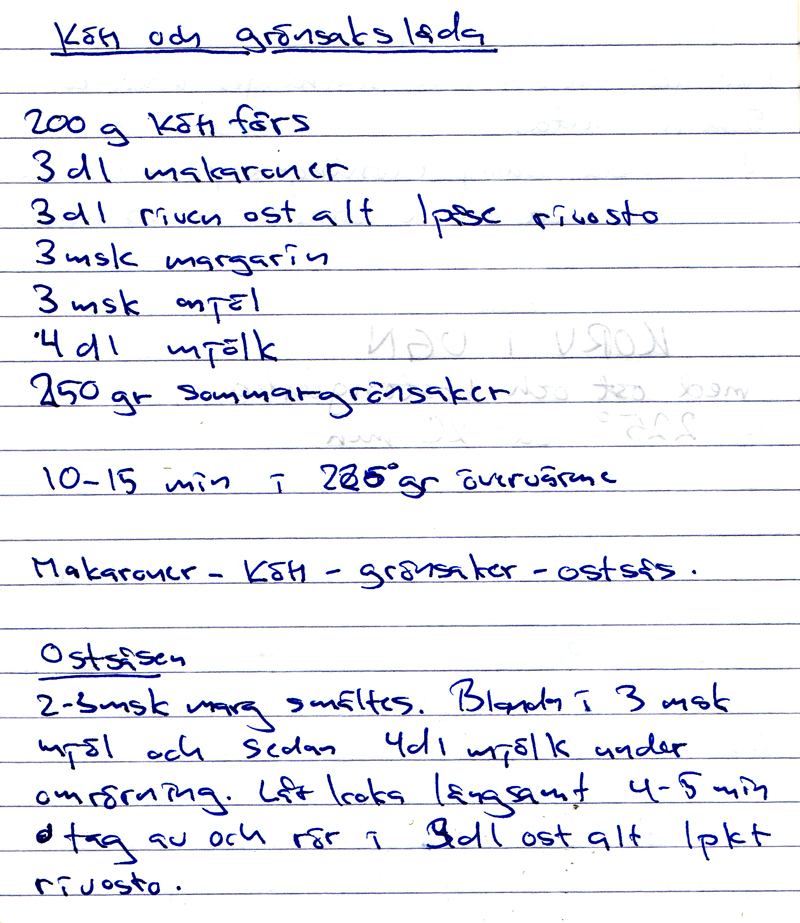 Kött och grönsakslåda
200 g Köttfärs
3 dl makaroner
3 dl riven ost alt 1påse rivosto
3 msk margarin
3 msk mjöl
4 dl mjölk
250 gr sommargrönsaker
10-15 min i 225° gr övervärme
Makaroner - Kött - grönsaker - ostsås.
Ostsåsen
2-3msk marg smältes. Blanda i 3 msk
mjöl och sedan 4dl mjölk under
omrörning. Låt koka långsamt 4-5 min
tag av och rör i 3dl ost alt 1pkt
rivosto.
KORV I UGN
med ost och
225°   min